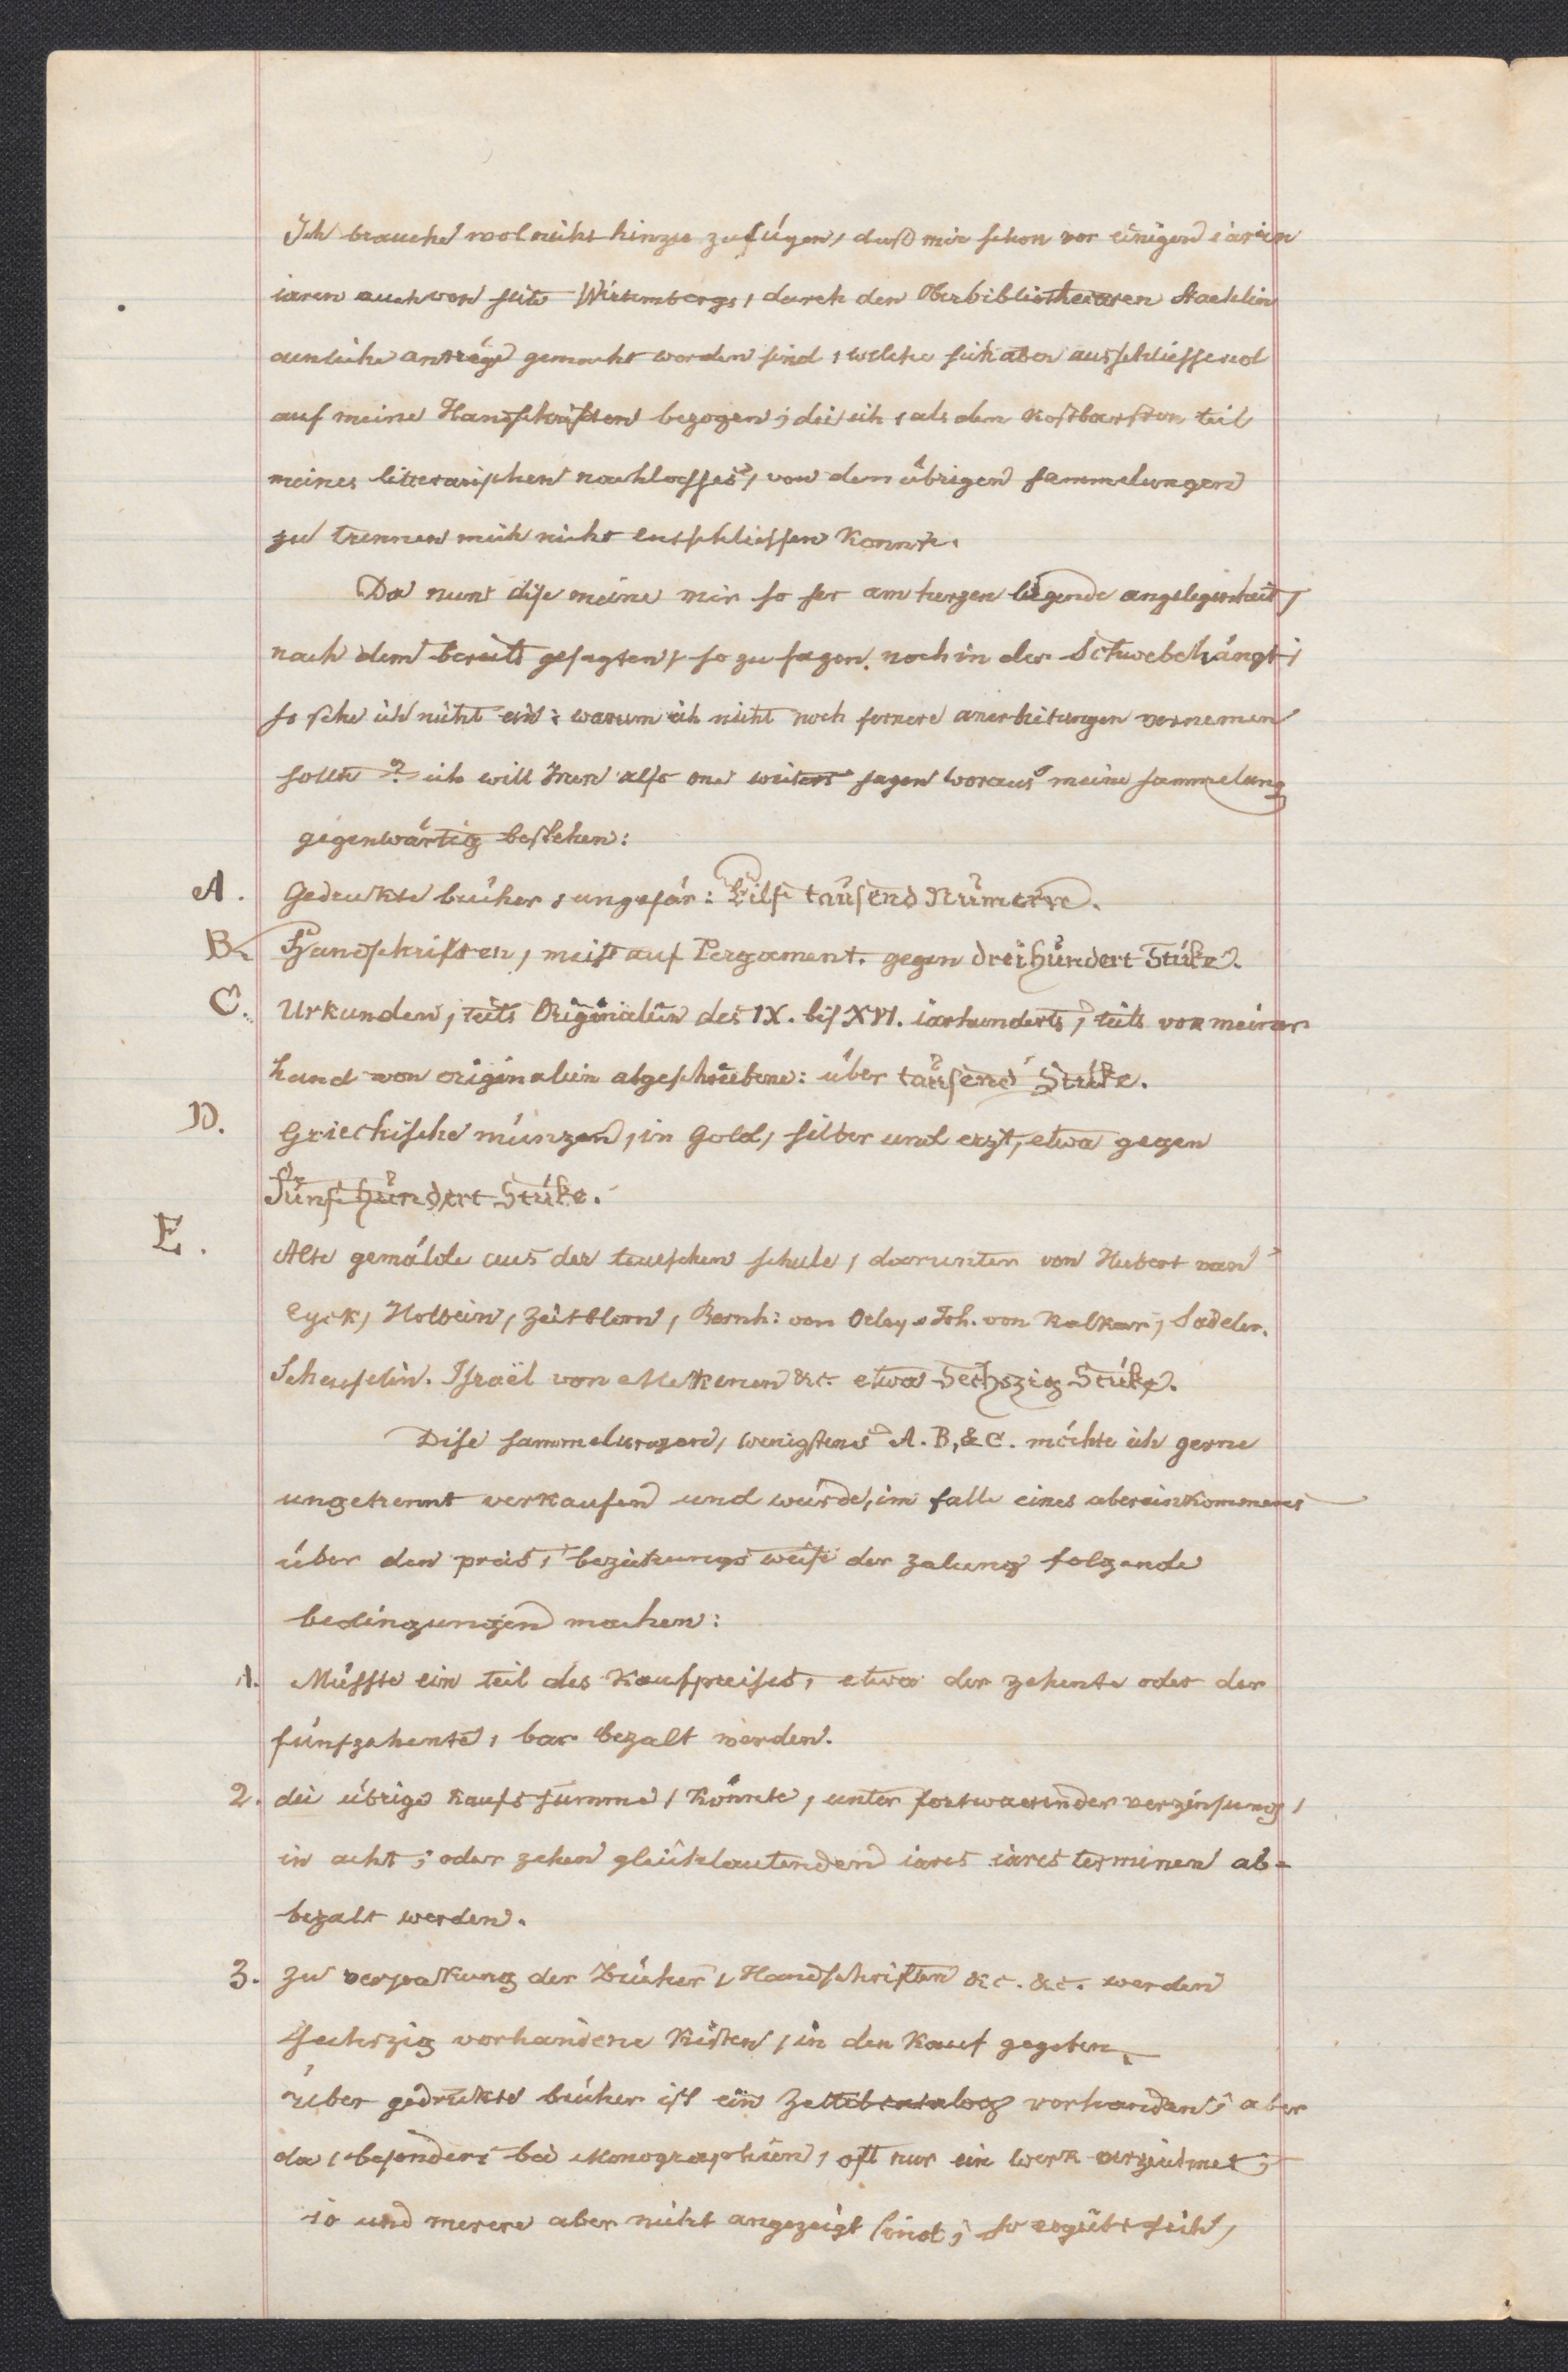 Ich brauche wol nicht hinzu zu fügen, daß mir schon vor einigen iaren
iaren auch von seite Wirtembergs, durch den Oberbibliothecaren Staehlin
aenliche anträge gemacht worden sind, welche sich aber ausschliessend
auf meine Handschriften bezogen; die ich, als den kostbarsten teil
meines litterarischen nachlasses, von den übrigen sammelungen
zu trennen mich nicht entschliessen konnte.
Da nun dise meine mir so ser am herzen ligende angelegenheit,
nach dem bereits gesagten, so zu sagen, noch in der Schwebe hängt;
so sehe ich nicht ein: warum ich nicht noch fernere anerbietungen vernemen
sollte? ich will Inen also one weiters sagen woraus meine sammelung
gegenwärtig bestehen:
A. Gedrukte bücher, ungefär: Eilf tausend Numern.
B. Handschriften, meist auf Pergament. gegen dreihundert Stüke.
C. Urkunden, teils Originalien des IX. bis XVI. iarhunderts, teils von meiner
hand von originalien abgeschriebene: über tausend Stüke.
D. Griechische münzen, in Gold, silber und erzt, etwa gegen
Fünfhundert Stüke.
E. Alte gemälde aus der teutschen schule, darunter von Hubert van
Eyck, Holbein, Zeitblom, Bernh: von Orley, Joh. von Kalkar, Sadeler.
Scheufelin. Israël von Mekenen &c. etwa Sechszig Stüke.
Dise sammelungen, wenigstens A. B, & C. möchte ich gerne
ungetrennt verkaufen und würde, im falle eines übereinkommens
über den preis, beziehungsweise der zalung folgende
bedingungen machen:
1. Müsste ein teil des Kaufpreises, etwa der zehente oder der
fünfzehente, bar bezalt werden.
2. die übrige Kaufssumme, könnte, unter fortwaerender verzinsung,
in acht, oder zehen gleichlautenden iares iares terminen ab-
bezalt werden.
3. Zu verpakung der Bücher, Handschriften &c. &c. werden
sechszig vorhandene Kisten, in den Kauf gegeben.
über gedrukte bücher ist ein Zettelcatalog vorhanden; aber
da, besonders bei Monographien, oft nur ein werk verzeichnet,
10 und merere aber nicht angezeigt sind; so ergiebt sich,